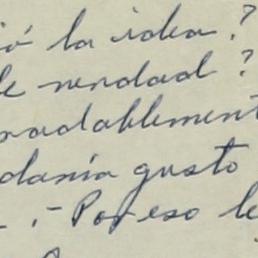 ió la idea?
de verdad?
nadablement
daría gusto
-.- Por eso le